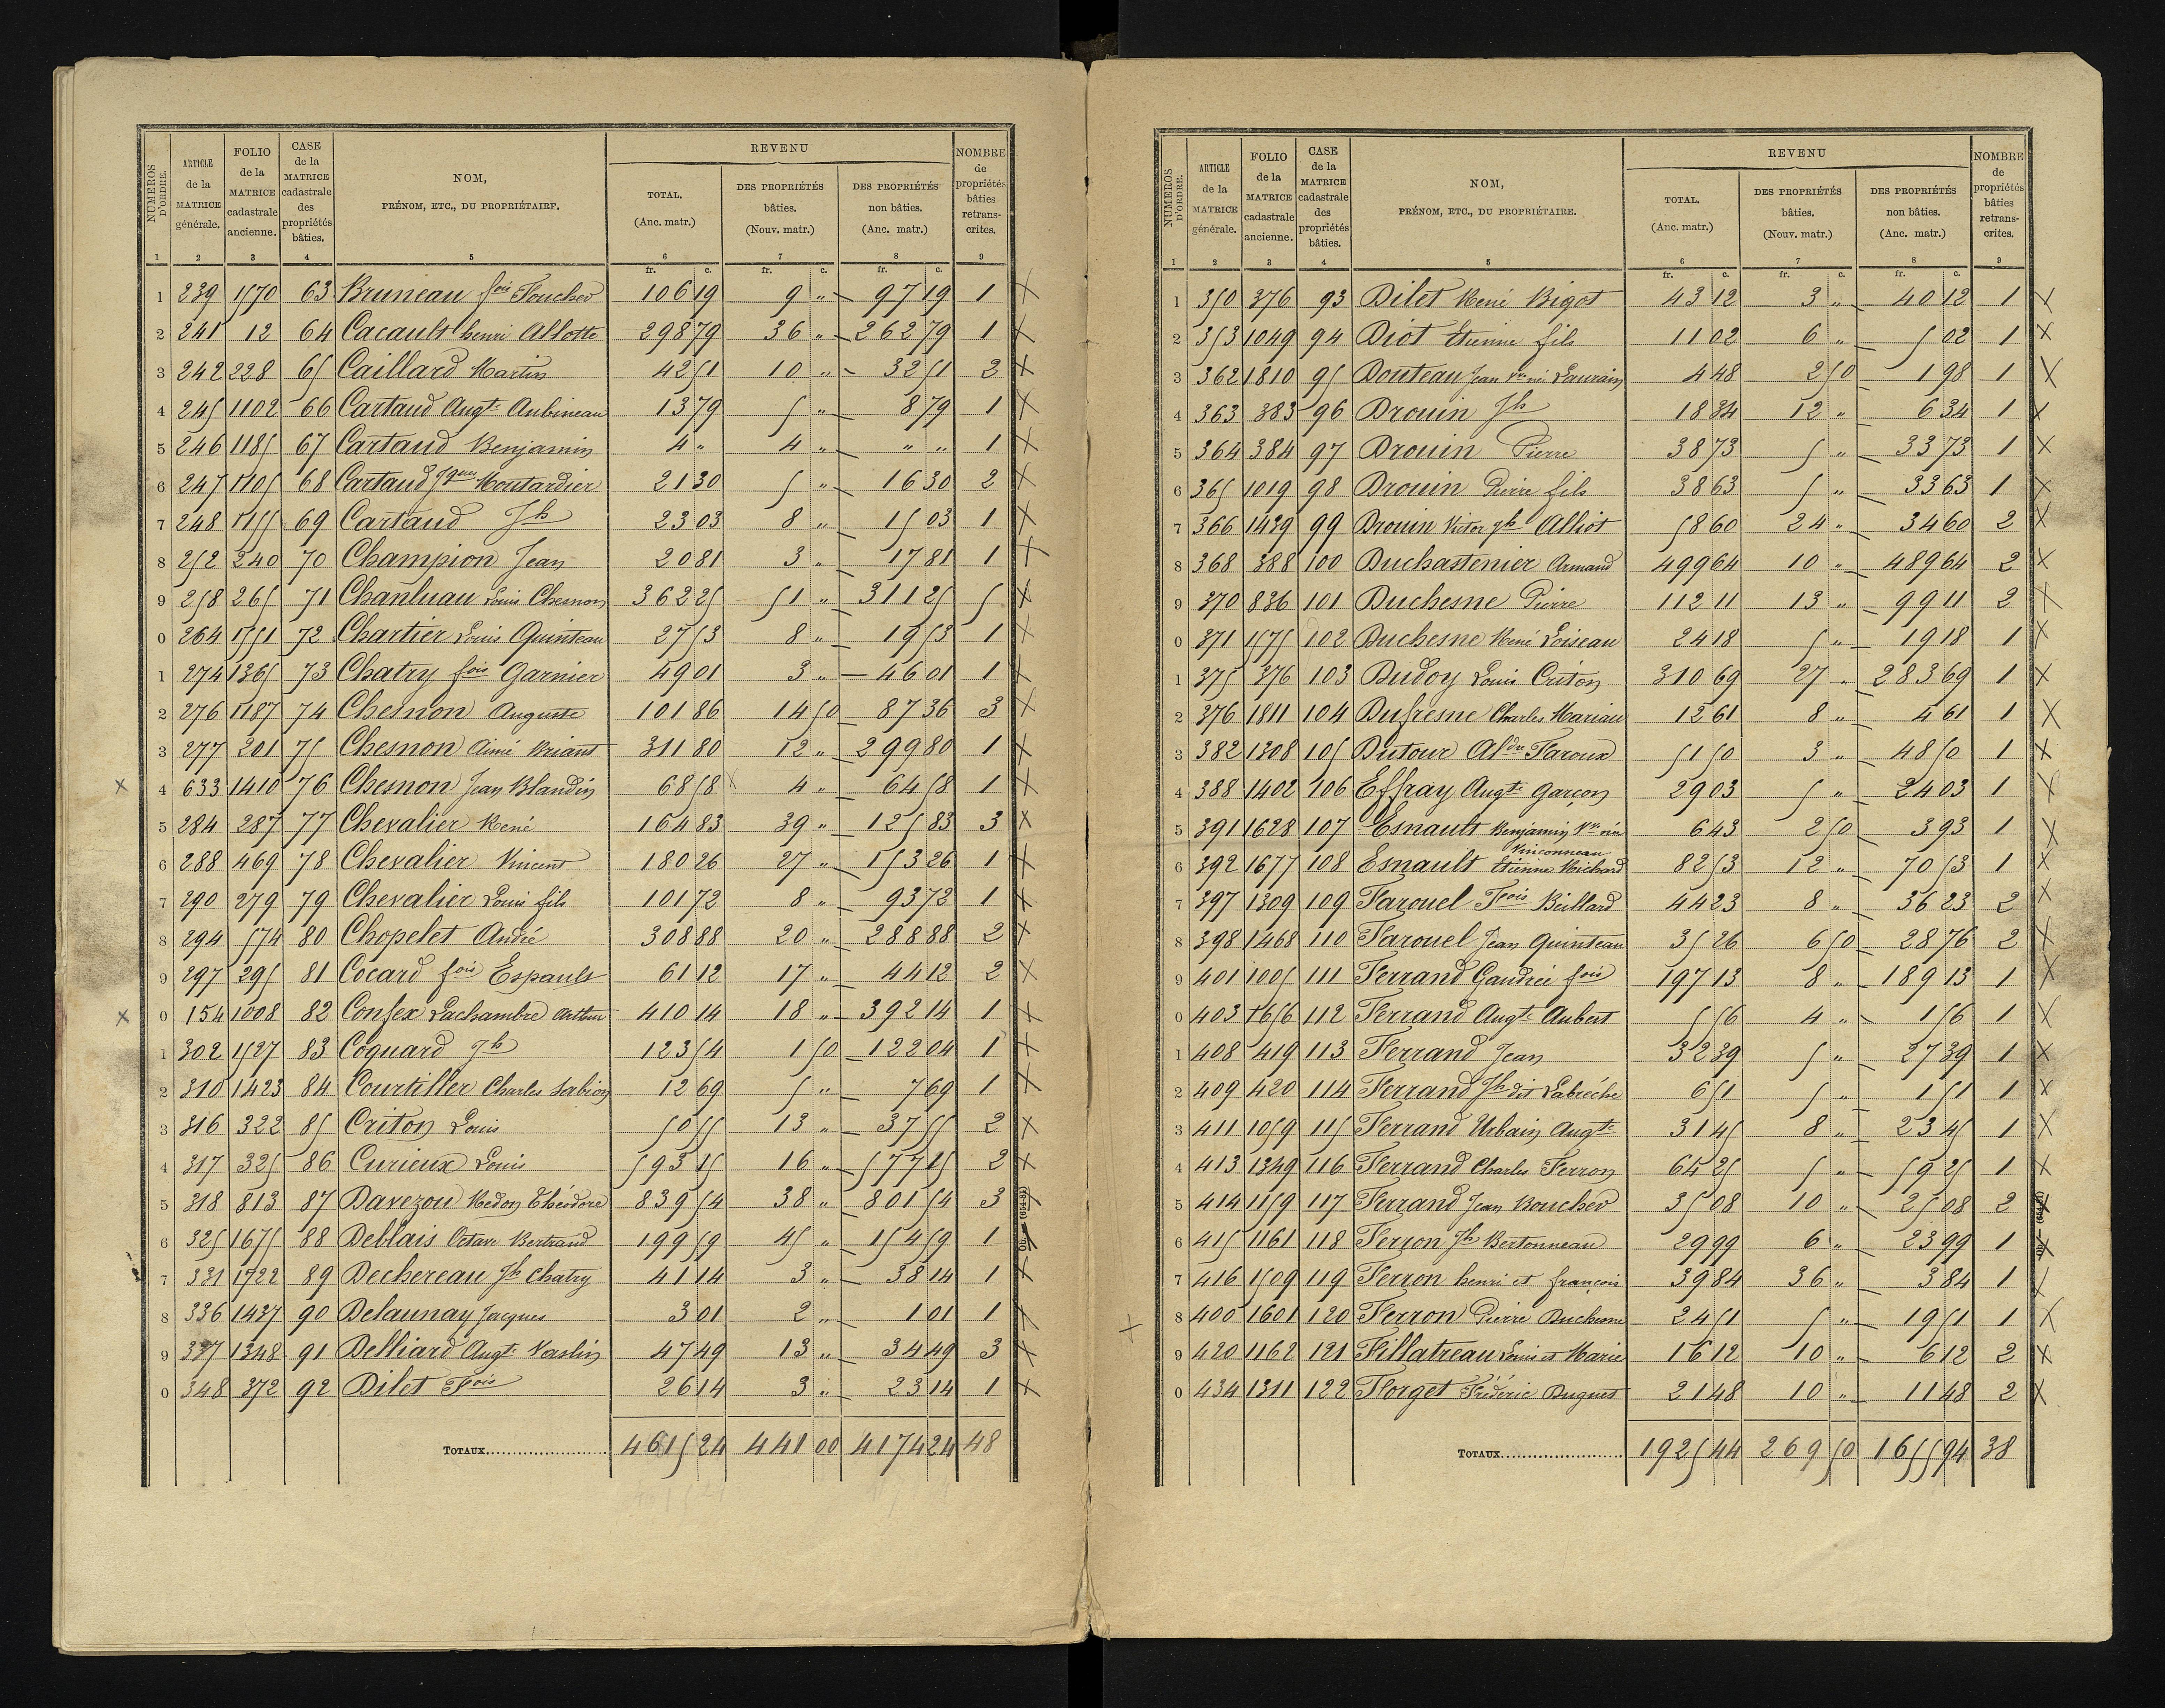 NUMEROS D'ORDRE. | ARTICLE de la MATRICE générale. | FOLIO de la MATRICE cadastrale ancienne. | CASE de la MATRICE cadastrale des propriétés bâties. | NOM, PRÉNOM, ETC., DU PROPRIÉTAIRE. | REVENU TOTAL. (Anc. matr.) | DES PROPRIÉTÉS bâties. (Nouv. matr.) | DES PROPRIÉTÉS non bâties. (Anc. matr.) | NOMBRE de propriétés bâties retranscrites.
1 2 3 4 5 6 7 8 9
fr. c. fr. c. fr. c.
1 239 1570 63 Bruneau fois Foucher 106 19 9 " 97 19 1 X
2 241 12 64 Cacault henri Allotte 298 79 36 " 262 79 1 X
3 242 228 65 Caillard Martin 42 51 10 " 32 51 2 X
4 245 1102 66 Cartaud Augte Aubineau 13 79 5 " 8 79 1 X
5 246 1185 67 Cartaud Benjamin 4 " 4 " " " 1 X
6 247 1105 68 Cartaud Jques Moutardier 21 30 5 " 16 30 2 X
7 248 1155 69 Cartaud Jh 23 03 8 " 15 03 1 X
8 252 240 70 Champion Jean 20 81 3 " 17 81 1 X
9 258 265 71 Chanluau Louis Chesnon 362 25 51 " 311 25 5 X
0 264 1751 72 Chartier Louis Quinteau 27 53 8 " 19 53 1 X
1 274 1365 73 Chatry fois Garnier 49 01 3 " 46 01 1 X
2 276 1187 74 Chesnon Auguste 101 86 14 50 87 36 3 X
3 277 201 75 Chesnon Aimé Briant 311 80 12 " 299 80 1 X
X 4 633 1410 76 Chesnon Jean Blandin 68 58 X 4 " 64 58 1 X
5 284 287 77 Chevalier René 164 83 39 " 125 83 3 X
6 288 469 78 Chevalier Vincent 180 26 27 " 153 26 1 X
7 290 279 79 Chevalier Louis fils 101 72 8 " 93 72 1 X
8 294 574 80 Chopelet André 308 88 20 " 288 88 2 X
9 297 295 81 Cocard fois Espault 61 12 17 " 44 12 2 X
X 0 154 1008 82 Confex Lachambre Arthur 410 14 18 " 392 14 1 X
1 302 1527 83 Coquard Jh 123 54 1 50 122 04 1 X
2 310 1423 84 Courtiller Charles Sabion 12 69 5 " 7 69 1 X
3 316 322 85 Criton Louis 50 55 13 " 37 55 2 X
4 317 325 86 Curieux Louis 593 15 16 " 577 15 2 X
5 318 813 87 Davezou Redon Théodore 839 54 38 " 801 54 3 X
6 325 1675 88 Deblais Octave Bertrand 199 59 45 " 154 59 1 X
7 331 1722 89 Dechereau Jh Chatry 41 14 3 " 38 14 1 X
8 336 1437 90 Delaunay Jacques 3 01 2 " 1 01 1 X
9 337 1348 91 Delliard Augte Vaslin 47 49 13 " 34 49 3 X
0 348 372 92 Dilet Fois 26 14 3 " 23 14 1 X
TOTAUX 4615 24 441 00 4174 24 48
NUMEROS D'ORDRE. | ARTICLE de la MATRICE générale. | FOLIO de la MATRICE cadastrale ancienne. | CASE de la MATRICE cadastrale des propriétés bâties. | NOM, PRÉNOM, ETC., DU PROPRIÉTAIRE. | REVENU TOTAL. (Anc. matr.) | DES PROPRIÉTÉS bâties. (Nouv. matr.) | DES PROPRIÉTÉS non bâties. (Anc. matr.) | NOMBRE de propriétés bâties retranscrites.
1 2 3 4 5 6 7 8 9
fr. c. fr. c. fr. c.
1 350 376 93 Dilet René Bigot 43 12 3 " 40 12 1 X
2 353 1049 94 Diot Etienne fils 11 02 6 " 5 02 1 X
3 362 1810 95 Douteau Jean Vve née Laurain 4 48 2 50 1 98 1 X
4 363 383 96 Drouin Jh 18 34 12 " 6 34 1 X
5 364 384 97 Drouin Pierre 38 73 5 " 33 73 1 X
6 365 1019 98 Drouin Pierre fils 38 63 5 " 33 63 1 X
7 366 1439 99 Drouin Victor Jh Alliot 58 60 24 " 34 60 2 X
8 368 388 100 Duchastenier Armand 499 64 10 " 489 64 2 X
9 370 836 101 Duchesne Pierre 112 11 13 " 99 11 2 X
0 371 1575 102 Duchesne René Loiseau 24 18 5 " 19 18 1 X
1 375 376 103 Dudoy Louis Criton 310 69 27 " 283 69 1 X
2 376 1811 104 Dufresne Charles Mariau 12 61 8 " 4 61 1 X
3 382 1308 105 Dutour Aldre Faroux 51 50 3 " 48 50 1 X
4 388 1402 106 Effray Augte garçon 29 03 5 " 24 03 1 X
5 391 1628 107 Esnault Benjamin Vve née Vinconneau 6 43 2 50 3 93 1 X
6 392 1677 108 Esnault Etienne Richard 82 53 12 " 70 53 1 X
7 397 1309 109 Farouel Fois Billard 44 23 8 " 36 23 2 X
8 398 1468 110 Farouel Jean Quinteau 35 26 6 50 28 76 2 X
9 401 1005 111 Ferrand Gaudrée fois 197 13 8 " 189 13 1 X
0 403 1656 112 Ferrand Augte Aubert 5 56 4 " 1 56 1 X
1 408 419 113 Ferrand Jean 32 39 5 " 27 39 1 X
2 409 420 114 Ferrand Jh dit Labrèche 6 51 5 " 1 51 1 X
3 411 1059 115 Ferrand Urbain Augte 31 45 8 " 23 45 1 X
4 413 1349 116 Ferrand Charles Ferron 64 25 5 " 59 25 1 X
5 414 1159 117 Ferrand Jean Boucher 35 08 10 " 25 08 2 X
6 415 1161 118 Ferron Jh Bertonneau 29 99 6 " 23 99 1 X
7 416 1509 119 Ferron henri et françois 39 84 36 " 3 84 1 X
X 8 400 1601 120 Ferron Pierre Duchesne 24 51 5 " 19 51 1 X
9 420 1162 121 Fillatreau Louis et Marie 16 12 10 " 6 12 2 X
0 434 1311 122 Forget Frédéric Duguet 21 48 10 " 11 48 2 X
TOTAUX 1925 44 269 50 1655 94 38